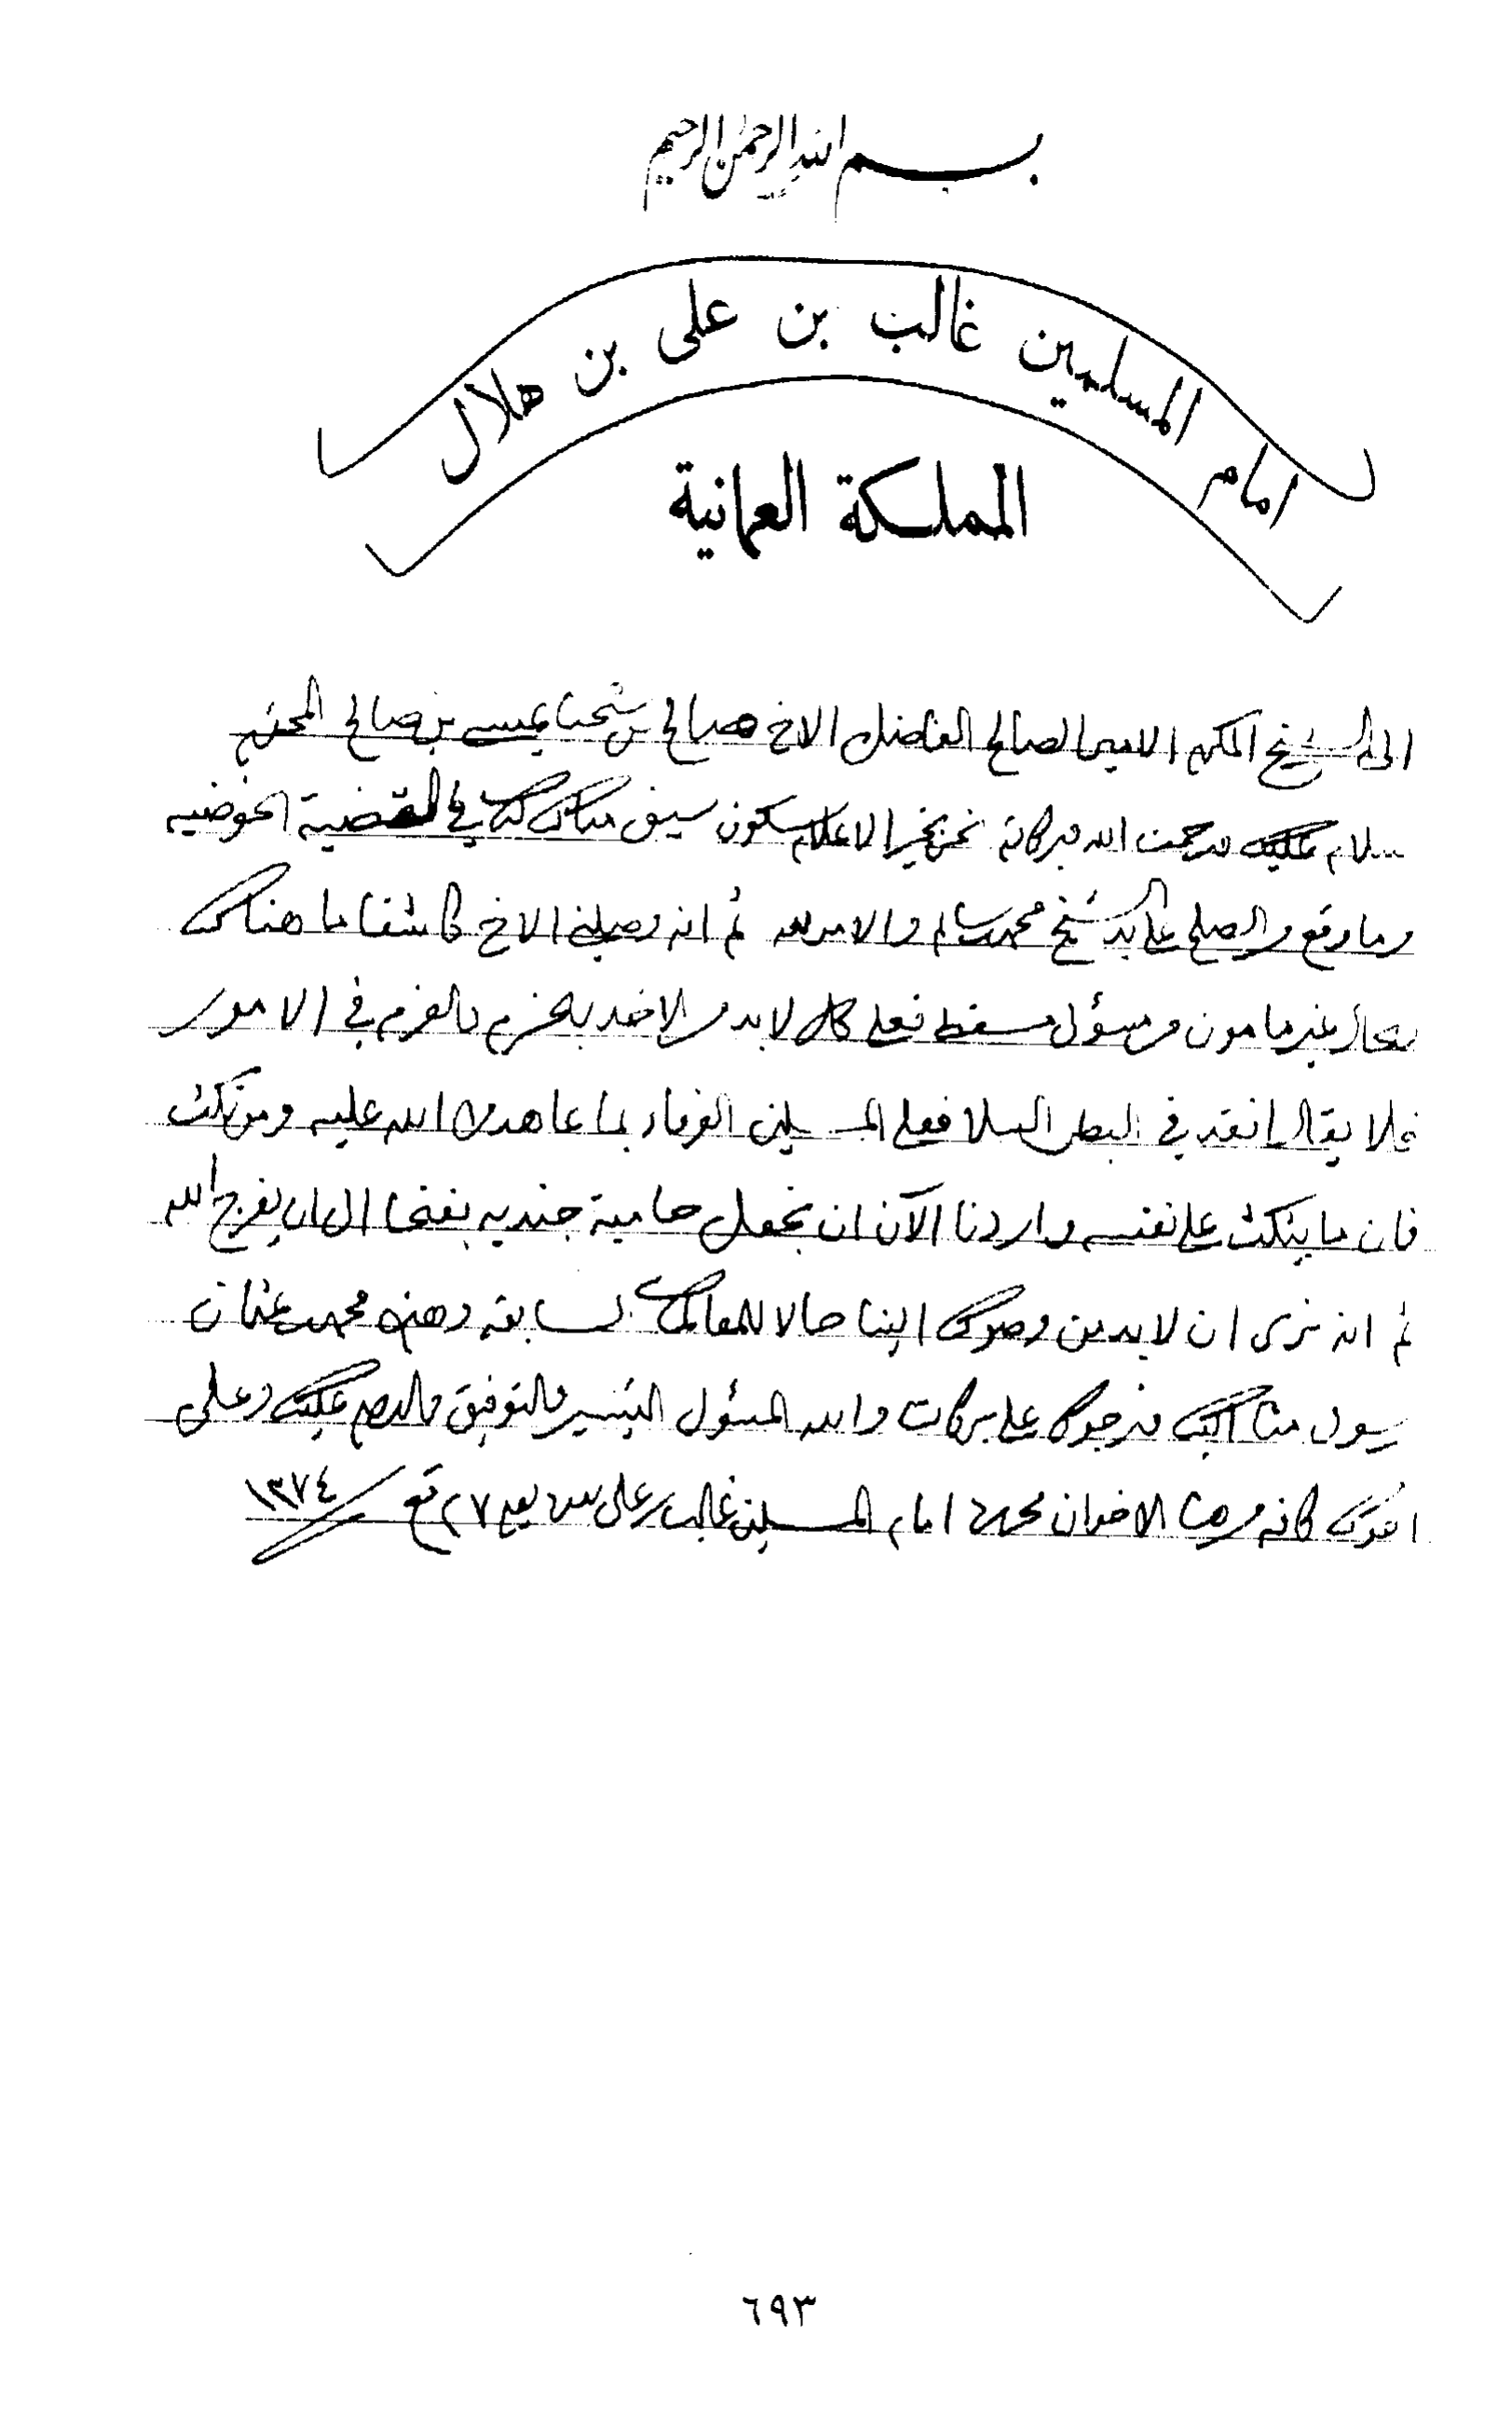 بسم الله الرحمن الرحيم
امام المسلمين غالب بن على بن هلال
المملكة العمانية
الى الشيخ المكرم الامير الصالح الفاضل الاخ صالح بن شيخنا عيسى بن صالح المحترم
سلام عليك ورحمت الله وبركاته نحن بخير الاعلام سكون سيف كتاب في القضية الحوضيه
وما وقع والصلح على يد الشيخ محمد بن سالم والامر لله ثم انه وصلني الاخ كاشفا ما هناك
غير مامون من مسؤل مسقط فعلى كل لابد من الاخذ بالحزم والعزم في الامور
فلا يقال انقد في البطن السلا فعلى المسلمين الوفاء بما عاهدوا الله عليه ومن نكث
فان ما ينكث على نفسه واردنا الآن ان نجعل حامية جنديه الى ان يفرج الله
ثم انه نرى ان لابد من وصولك الينا حالا السابقه وهذه محمد بن عثمان
رسول منا اليك فنرجوك على بركات والله المسؤل التيسير والتوفيق والسلام عليك وعلى
اخوك كافه من هنا الاخوان امام المسلمين غالب بن على بيده يوم ٢٧ قع ١٣٧٤
٦٩٣